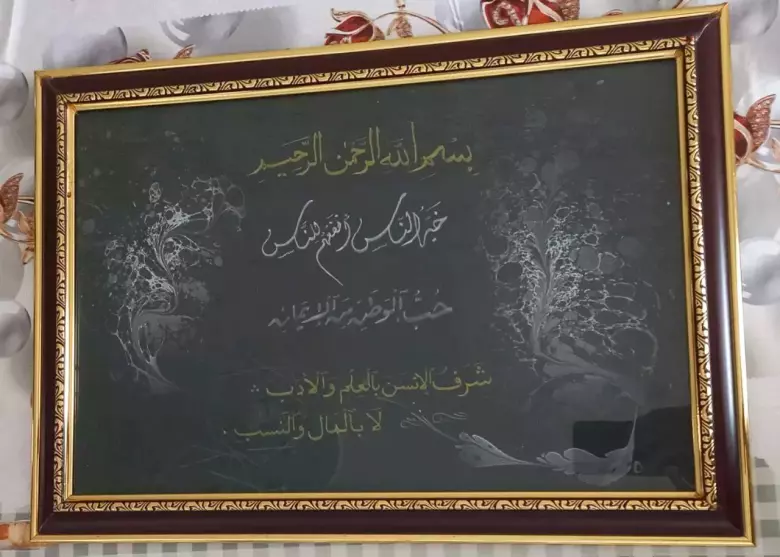 بسم الله الرحمن الرحيم
خير الناس أنفعهم للناس
حب الوطن من الإيمان
شرف الانسن بالعلم والأدب
لا بالمال والنسب.